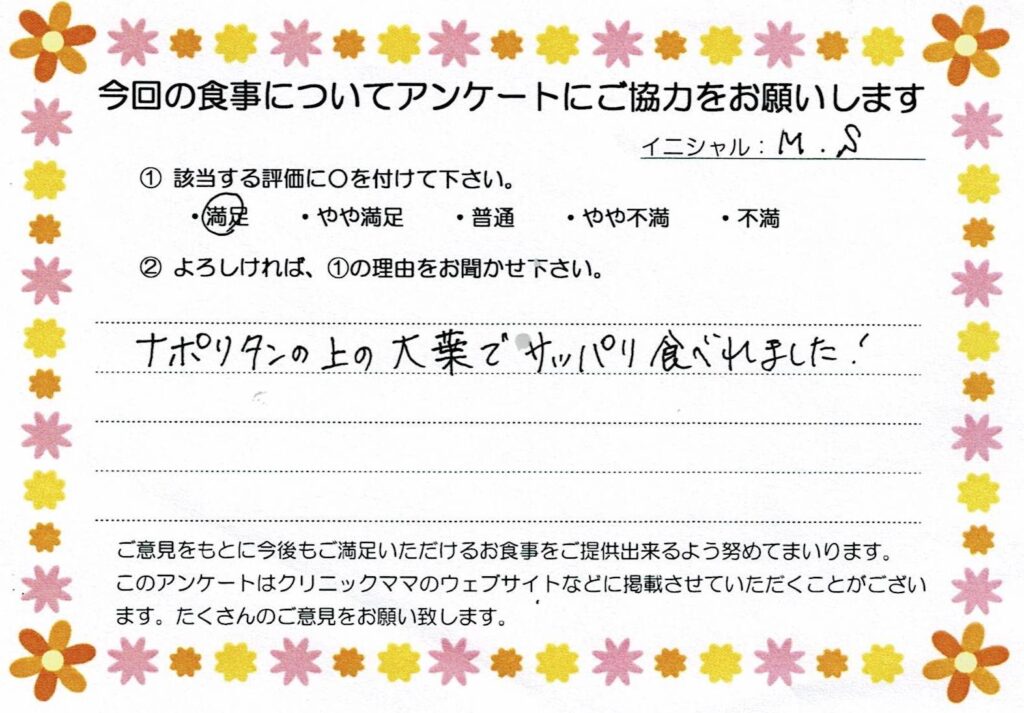 今回の食事についてアンケートにご協力をお願いします
イニシャル：M.S
① 該当する評価に〇を付けて下さい。
・満足 ・やや満足 ・普通 ・やや不満 ・不満
② よろしければ、①の理由をお聞かせ下さい。
ナポリタンの上の大葉でサッパリ食べれました！
ご意見をもとに今後もご満足いただけるお食事をご提供出来るよう努めてまいります。
このアンケートはクリニックママのウェブサイトなどに掲載させていただくことがござい
ます。たくさんのご意見をお願い致します。